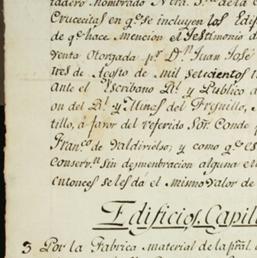 tadero nombrado Ntra. Sra. de la C
Crucecitas en qe. se incluyen los Edif
de qe. hace mencion el Testimonio d
venta Otorgada pr. Dn. Juan José
tres de Agosto de mil setecientos t
Ante el Escribano Rl. y Publico d
on del Rl. y Minas del Fresnillo, 
tillo, á favor del referido Sor. Conde
Franco. de Valdivielso; y como qe. es
conserv sin desmembracion alguna el
entonces se les dá el mismo valor de
Edificios, Capill
3 Por la Fabrica material de la